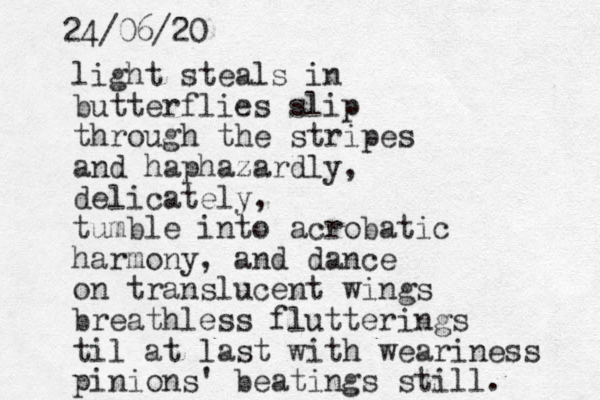 24/06/20
light steals in
butterflies slip
through the stripes
and haphazardly,
delicately,
tumble into acrobatic
harmony, and dance
on translucent wings
breathless flutterings
til at last with weariness
pinions' beatings still.